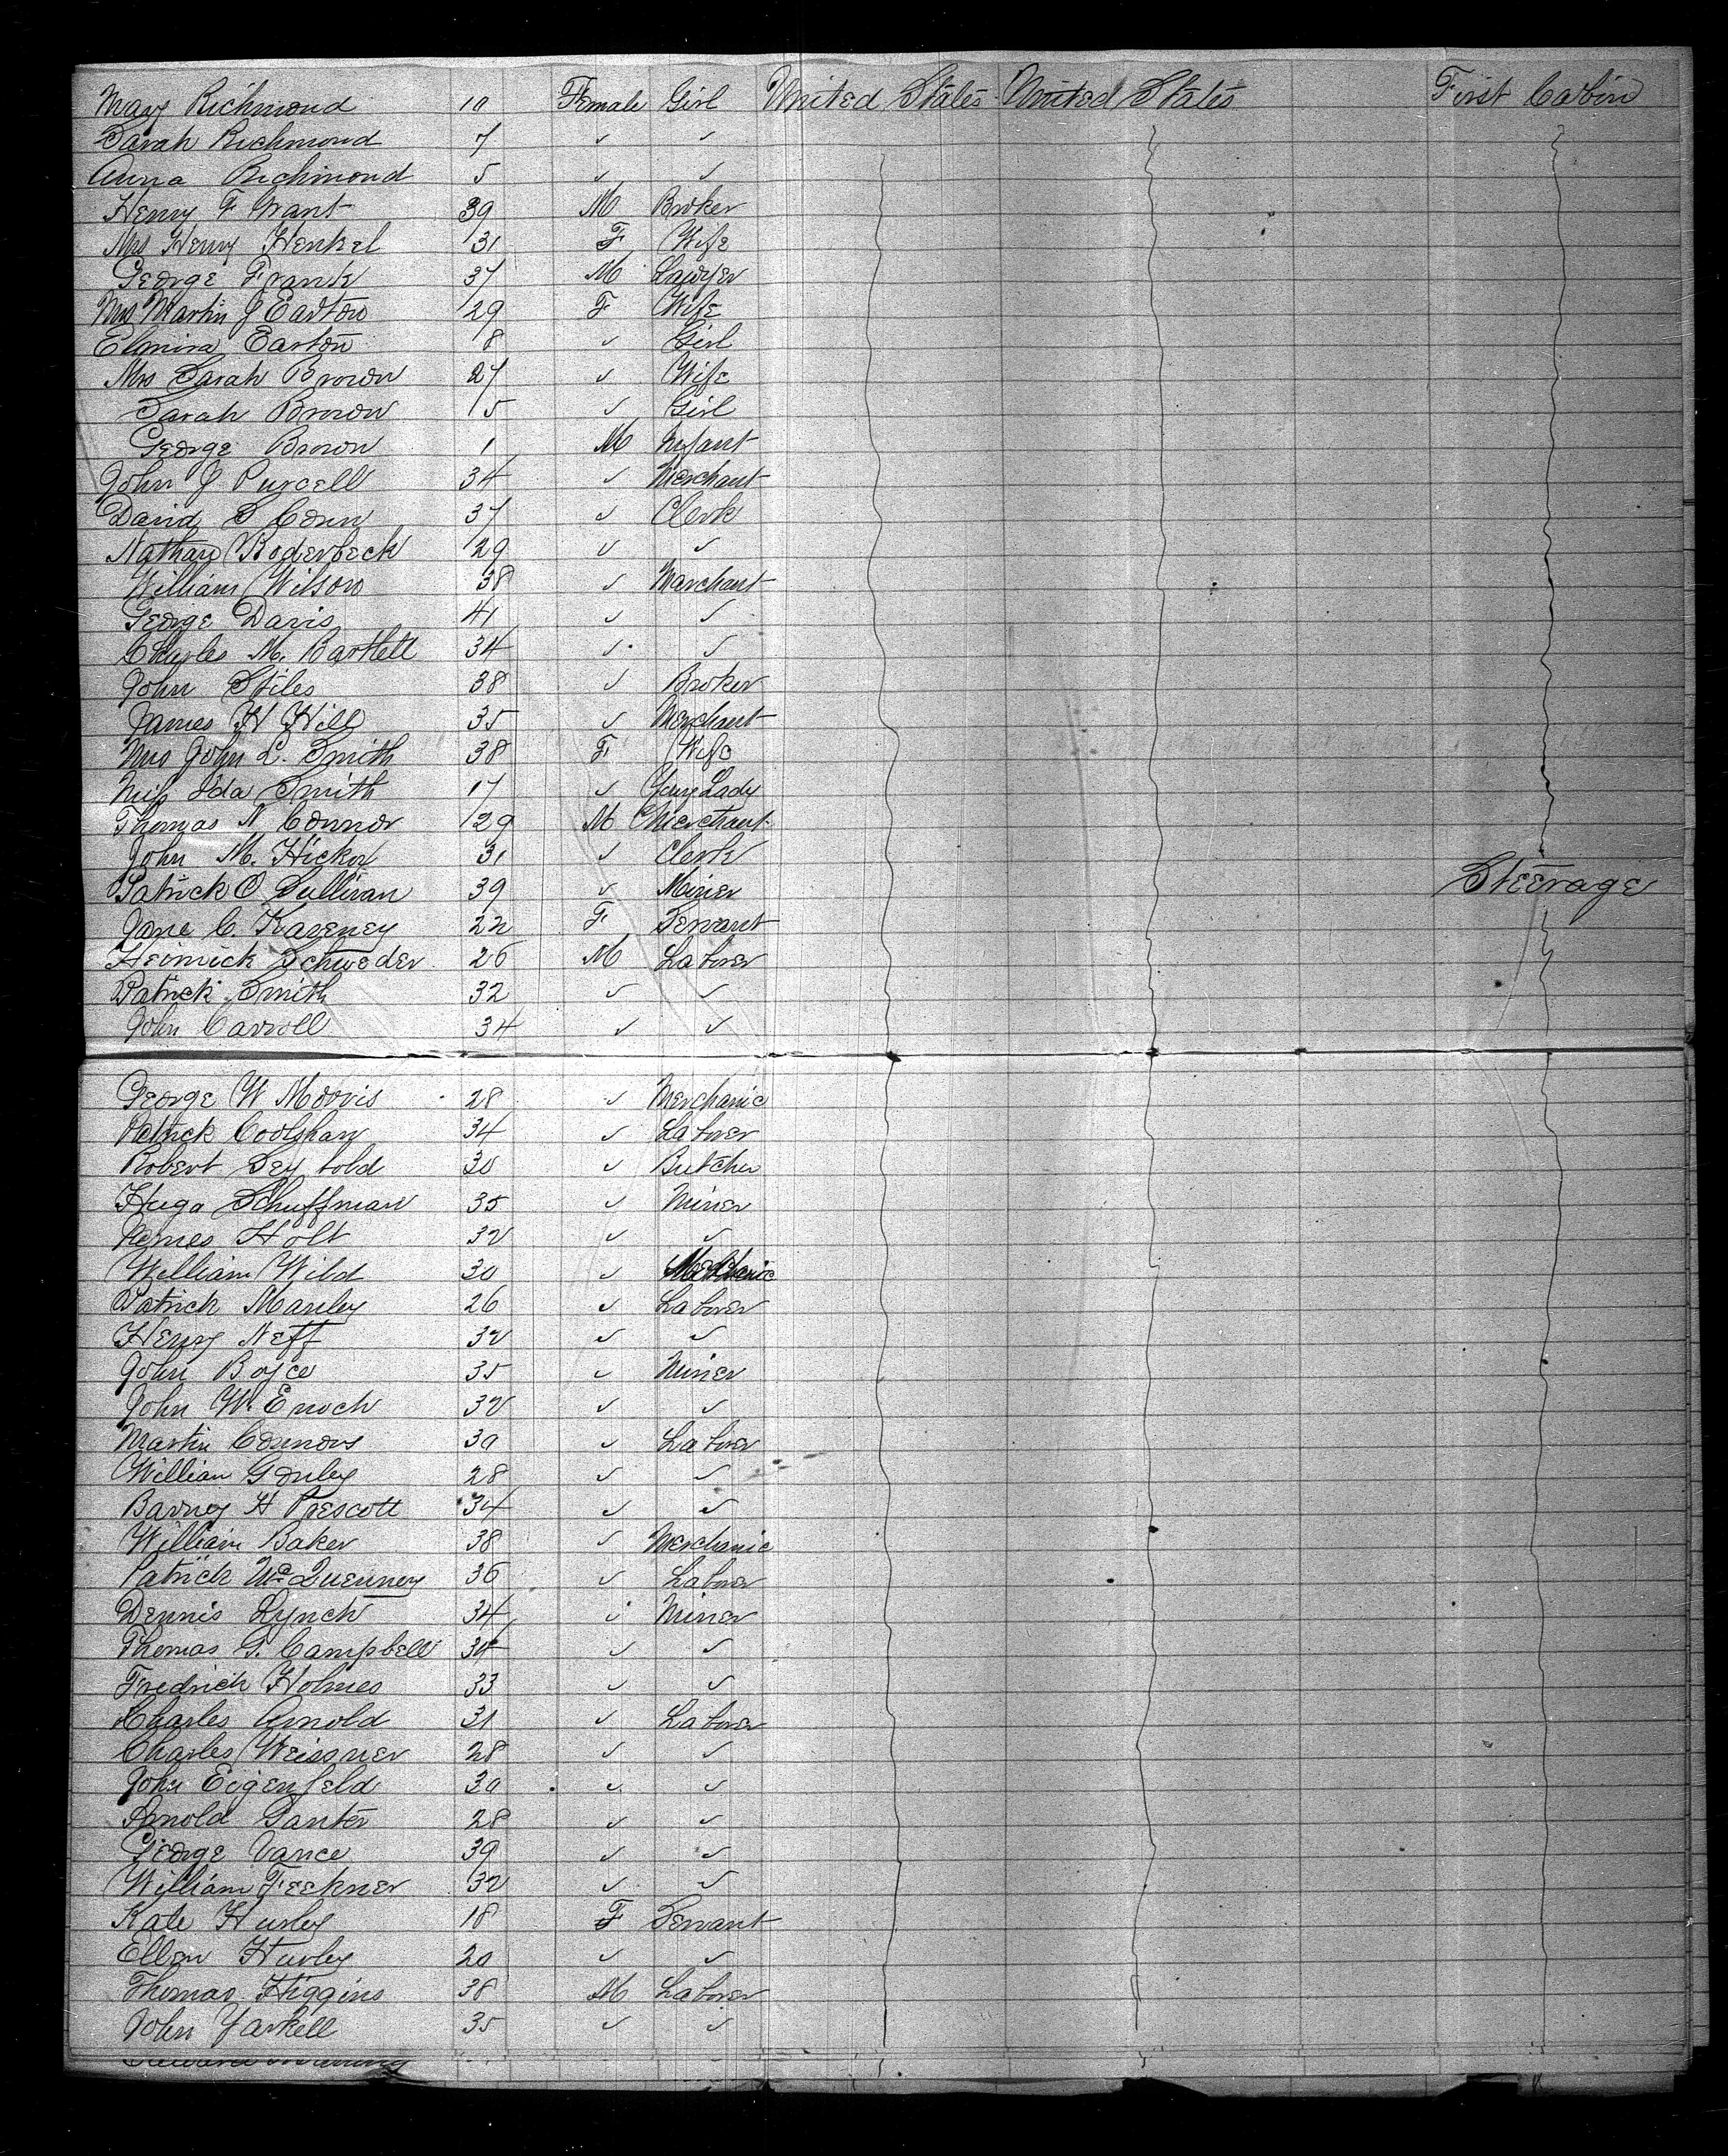 Mary Richmond 10 Female Girl United States United States First Cabin
Sarah Richmond 7 ✓ ✓
Anna Richmond 5 ✓ ✓
Henry F Grant 39 M Broker
Mrs Henry Henkel 31 F Wife
George Frank 37 M Lawyer
Mrs Martin J Easton 29 F Wife
Elmira Easton 8 ✓ Girl
Mrs Sarah Brown 27 ✓ Wife
Sarah Brown 5 ✓ Girl
George Brown 1 M Infant
John J Purcell 34 ✓ Merchant
David S Conn 37 ✓ Clerk
Nathan Roderbeck 29 ✓ ✓
William Wilson 38 ✓ Marchant
George Davis 41 ✓ ✓
Charles M. Bartlett 34 ✓ ✓
John Stiles 38 ✓ Broker
James H Hill 35 ✓ Merchant
Mrs John L. Smith 38 F Wife
Miss Ida Smith 17 ✓ Lady
Thomas N Connor 29 M Merchant
John M. Hickox 31 ✓ Clerk
Patrick O Sullivan 39 ✓ Miner Steerage
Jane C. Kaveney 22 F Servant
Heinrick Schweder 26 M Laborer
Patrick Smith 32 ✓ ✓
John Carroll 34 ✓ ✓
George W Morris 28 ✓ Merchanic
Patrick Cooghan 34 ✓ Laborer
Robert Sey bold 30 ✓ Butcher
Hugo Schuffman 35 ✓ Miner
James Holt 32 ✓ ✓
William Wild 30 ✓ Mechanic
Patrick Manley 26 ✓ Laborer
Henry Neff 32 ✓ ✓
John Boyce 35 ✓ Miner
John W. Enoch 32 ✓ ✓
Martin Connors 30 ✓ Laborer
William Gonley 28 ✓ ✓
Barney H Prescott 34 ✓ ✓
William Baker 38 ✓ Merchanic
Patrick McQuenney 36 ✓ Laborer
Dennis Lynch 34 ✓ Miner
Thomas G. Campbell 34 ✓ ✓
Fredrick Holmes 33 ✓ ✓
Charles Arnold 31 ✓ Laborer
Charles Weissner 28 ✓ ✓
John Eigenfeld 30 ✓ ✓
Arnold Ganter 28 ✓ ✓
George Vance 39 ✓ ✓
William Feckner 32 ✓ ✓
Kate Hurley 18 F Servant
Ellen Hurley 20 ✓ ✓
Thomas Higgins 38 M Laborer
John Yarkell 35 ✓ ✓